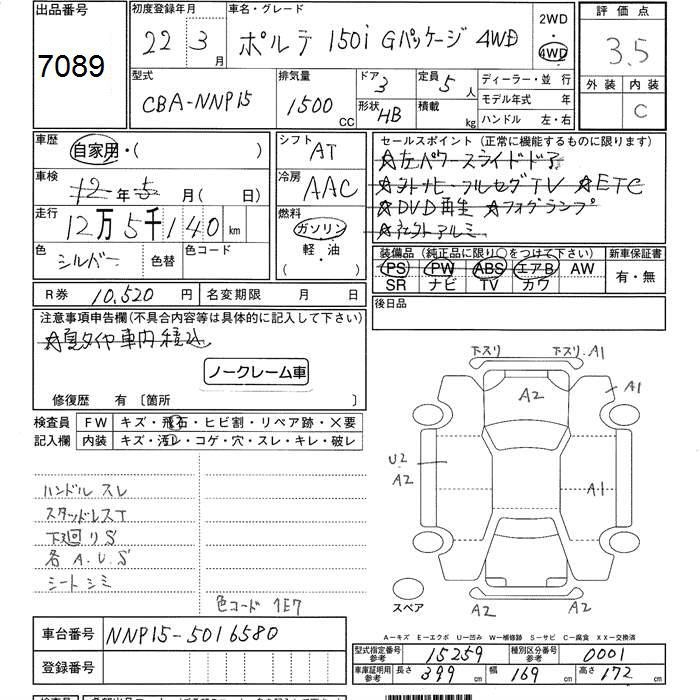 出品番号
7089
初度登録年月
22 3月
車名・グレード
ポルテ 150i Gパッケージ 4WD
2WD
4WD
評価点
3.5
外装 内装
C
型式
CBA-NNP15
排気量
1500 CC
ドア
3
形状
HB
定員
5人
積載 kg
ディーラー・並行
モデル年式 年
ハンドル 左・右
車歴
自家用・( )
車検
12年5月( 日)
走行
12万5千140km
色
シルバー
色替
色コード
シフト
AT
冷房
AAC
燃料
ガソリン
軽・油
( )
セールスポイント (正常に機能するものに限ります)
☆左パワースライドドア
☆ストナビ・フルセグTV ☆ETC
☆DVD再生 ☆フォグランプ
アルミ
装備品 (純正品に限り○をつけて下さい)
PS PW ABS エアB AW
SR ナビ TV カワ
新車保証書
有・無
後日品
R券 10,520円
名変期限 月 日
注意事項申告欄(不具合内容等は具体的に記入して下さい)
☆夏タイヤ車内積込
ノークレーム車
修復歴 有 〔箇所 〕
検査員
記入欄
FW キズ・飛石・ヒビ割・リペア跡・×要
内装 キズ・汚レ・コゲ・穴・スレ・キレ・破レ
ハンドル スレ
スタッドレスT
下廻りS
各A.U.S
シートシミ
色コード 1E7
下スリ
下スリ.A1
A2
A1
U2
A2
A1
A2
A2
スペア
A−キズ E−エクボ U−凹み W−補修跡 S−サビ C−腐食 XX−交換済
車台番号
NNP15-5016580
登録番号
型式指定番号
参考
15259
種別区分番号
参考
0001
車庫証明用
参考
長さ 399cm 幅 169cm 高さ 172cm